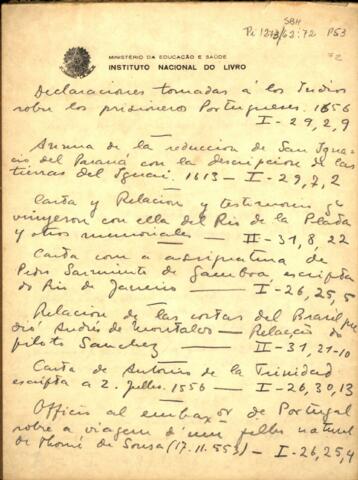 SBH
Pi 1273/62:72 P53
72
MINISTÉRIO DA EDUCAÇÃO E SAÚDE
INSTITUTO NACIONAL DO LIVRO
Declaraciones tomadas á los Indios
sobre los prisioneros Portugueses. 1656
I-29,2,9
Annua de la reduccion de San Igna-
cio del Paraná con la descripcion de las
tierras del Iguaí. 1613 - I-29,7,2
Carta y Relacion y testimonios q̃
vinyeron con ella del Rio de la Plata
y otros memoriales — II-31,8,22
Carta com a assignatura de
Pedro Sarmiento de Gamboa, escripta
do Rio de Janeiro — I-26,25,5
Relacion de las costas del Brasil que
dió Andrés de Montalvo — Relação do
piloto Sanchez — II-31,21-10
Carta de Antonio de la Trinidad
escripta a 2. Julho. 1556 - I-26,30,13
Officio al embaxor de Portugal
sobre a viagem d'um filho natural
de Thomé de Sousa (17.11.553) - I-26,25,4